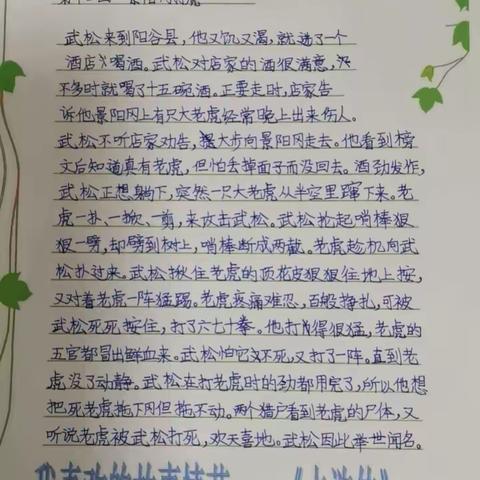 武松来到阳谷县，他又饥又渴，就选了一个
酒店喝酒。武松对店家的酒很满意，
不多时就喝了十五碗酒。正要走时，店家告
诉他景阳冈上有只大老虎经常晚上出来伤人。
武松不听店家劝告，大步向景阳冈走去。他看到榜
文后知道真有老虎，但怕丢掉面子而没回去。酒劲发作，
武松正想躺下，突然一只大老虎从半空里蹿下来。老
虎一扑、一掀、一剪，来攻击武松。武松抡起哨棒狠
狠一劈，却劈到树上，哨棒断成两截。老虎趁机向武
松扑过来。武松揪住老虎的顶花皮狠狠往地上按，
又对着老虎一阵猛踢。老虎疼痛难忍，百般挣扎，可被
武松死死按住，打了六七十拳。他打得很猛，老虎的
五官都冒出鲜血来。武松怕它不死，又打了一阵。直到老
虎没了动静。武松在打老虎时的劲都用完了，所以他想
把死老虎拖下冈但拖不动。两个猎户看到老虎的尸体，又
听说老虎被武松打死，欢天喜地。武松因此举世闻名。